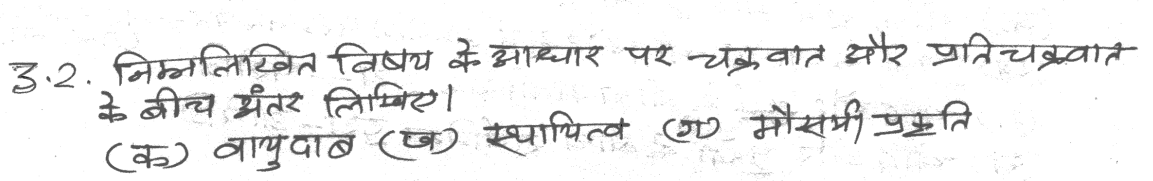 3.2. निम्नलिखित विषय के आधार पर चक्रवात और प्रतिचक्रवात
के बीच अंतर लिखिए।
(क) वायुदाब (ख) स्थायित्व (ग) मौसमी प्रकृति